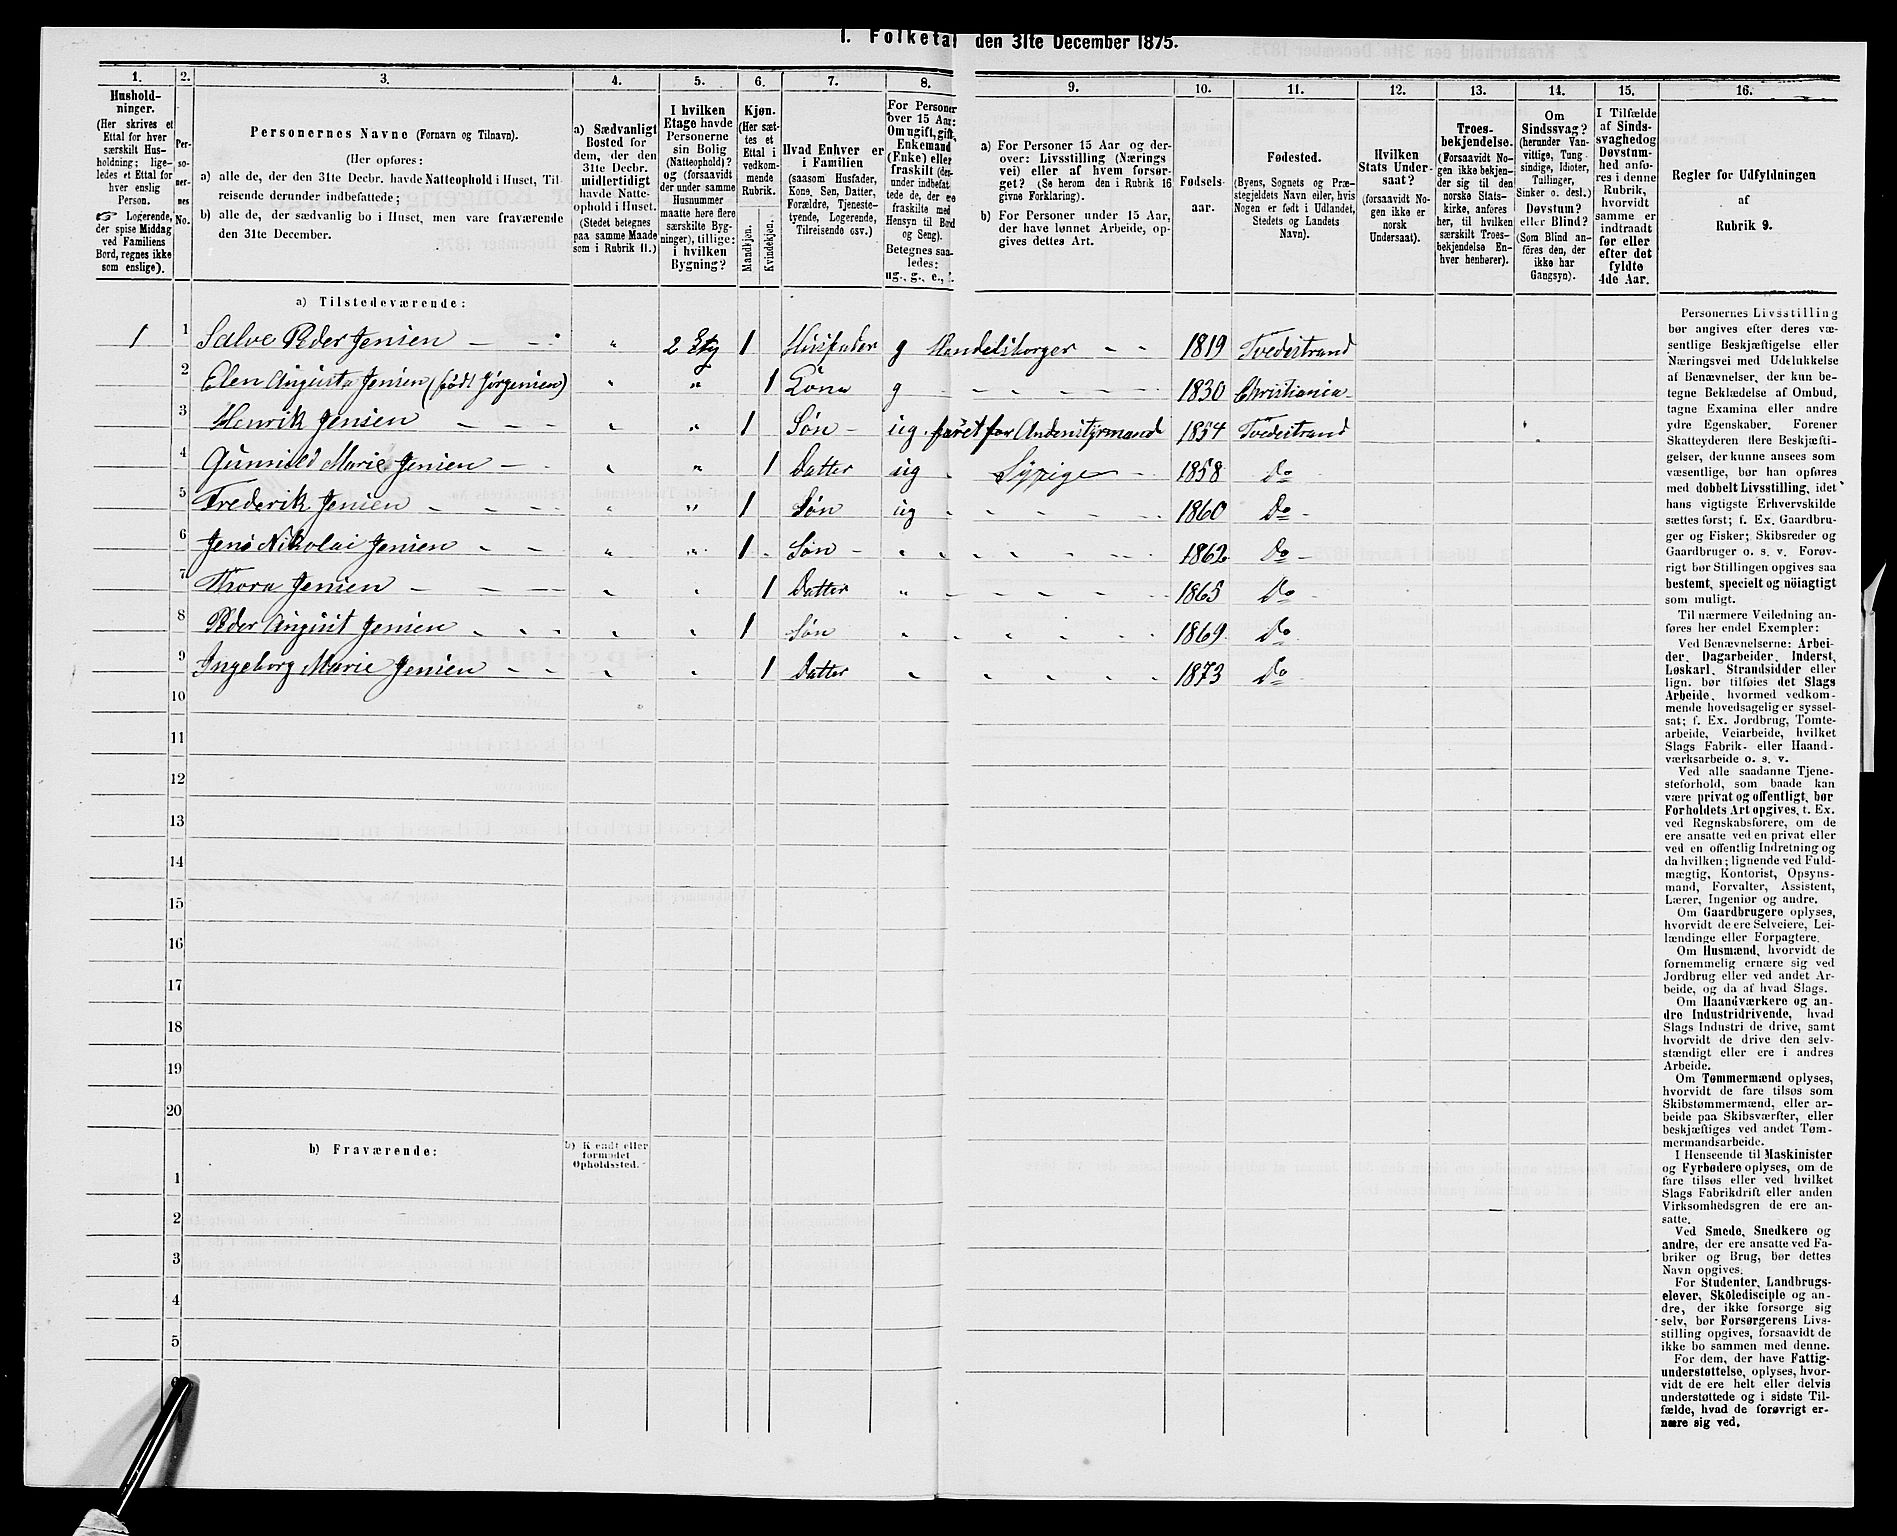 1. Folketal den 31te December 1875.
1. 2. 3. 4. 5. 6. 7. 8. 9. 10. 11. 12. 13. 14. 15. 16.
Hushold-
ninger.
(Her skrives et
Ettal for hver
særskilt Hus-
holdning; lige-
ledes et Ettal for
hver enslig
Person.
☞ Logerende,
der spise Middag
ved Familiens
Bord, regnes ikke
som enslige).
Per-
so-
ner-
nes
No.
Personernes Navne (Fornavn og Tilnavn).
(Her opføres:
a) alle de, der den 31te Decbr. havde Natteophold i Huset, Til-
reisende derunder indbefattede;
b) alle de, der sædvanlig bo i Huset, men vare fraværende
den 31te December.
a) Sædvanligt
Bosted for
dem, der den
31te Decbr.
midlertidigt
havde Natte-
ophold i Huset.
(Stedet betegnes
paa samme Maade
som i Rubrik 11.)
I hvilken
Etage havde
Personerne
sin Bolig
(Natteophold)?
og (forsaavidt
der under samme
Husnummer
maatte høre flere
særskilte Byg-
ninger), tillige:
i hvilken
Bygning?
Kjøn.
(Her sæt-
tes et
Ettal i
vedkom-
mende
Rubrik.
Mandkjøn.
Kvindekjøn.
Hvad Enhver er
i Familien
(saasom Husfader,
Kone, Søn, Datter,
Forældre, Tjeneste-
tyende, Logerende,
Tilreisende osv.)
For Personer
over 15 Aar:
Om ugift, gift,
Enkemand
(Enke) eller
fraskilt (der-
under indbefat-
tede de, der ere
fraskilte med
Hensyn til Bord
og Seng).
Betegnes saa-
ledes:
ug., g., e., f.
a) For Personer 15 Aar og der-
over: Livsstilling (Nærings
vei) eller af hvem forsør-
get? (Se herom den i Rubrik 16
givne Forklaring).
b) For Personer under 15 Aar,
der have lønnet Arbeide, op-
gives dettes Art.
Fødsels-
aar.
Fødested.
(Byens, Sognets og Præ-
stegjeldets Navn eller, hvis
Nogen er født i Udlandet,
Stedets og Landets
Navn).
Hvilken
Stats Under-
saat?
(forsaavidt No-
gen ikke er
norsk
Undersaat).
Troes-
bekjendelse.
(Forsaavidt No-
gen ikke bekjen-
der sig til den
norske Stats-
kirke, anføres
her, til hvilken
særskilt Troes-
bekjendelse En-
hver henhører).
Om
Sindssvag?
(herunder Van-
vittige, Tung-
sindige, Idioter,
Tullinger,
Sinker o. desl.)
Døvstum?
eller Blind?
(Som Blind an-
føres den, der
ikke har
Gangsyn).
I Tilfælde
af Sinds-
svaghed og
Døvstum-
hed anfø-
res i denne
Rubrik,
hvorvidt
samme er
indtraadt
før eller
efter det
fyldte
4de Aar.
Regler for Udfyldningen
af
Rubrik 9.
a) Tilstedeværende:
1 1 Salve Peder Jensen 2 Etg 1 Husfader g Handelsborger 1819 Tvedestrand
2 Elen Augusta Jensen (født Jørgensen) " 1 Kone g 1830 Christiania
3 Henrik Jensen " 1 Søn ug. faret for Andenstyrmand 1854 Tvedestrand
4 Gunnild Marie Jensen " 1 Datter ug Sypige 1858 Do
5 Frederik Jensen " 1 Søn ug 1860 Do
6 Jens Nikolai Jensen " 1 Søn 1862 Do
7 Thora Jensen 1 Datter " 1865 Do
8 Peder August Jensen 1 Søn 1869 Do
9 Ingeborg Marie Jensen 1 Datter " 1873 Do
10
11
12
13
14
15
16
17
18
19
20
b) Fraværende:
b) Kendt eller
formodet
Opholdssted.
1
2
3
4
5
6
Personernes Livsstilling
bør angives efter deres væ-
sentlige Beskjæftigelse eller
Næringsvei med Udelukkelse
af Benævnelser, der kun be-
tegne Beklædelse af Ombud,
tagne Examina eller andre
ydre Egenskaber. Forener
Skatteyderen flere Beskjæfti-
gelser, der kunne ansees som
væsentlige, bør han opføres
med dobbelt Livsstilling, idet
hans vigtigste Erhvervskilde
sættes først; f. Ex. Gaardbru-
ger og Fisker; Skibsreder og
Gaardbruger o. s. v. Forøv-
rigt bør Stillingen opgives saa
bestemt, specielt og nöiagtigt
som muligt.
Til nærmere Veiledning an-
føres her endel Exempler:
Ved Benævnelserne: Arbei-
der, Dagarbeider, Inderst,
Løskarl, Strandsidder eller
lign. bør tilføies det Slags
Arbeide, hvormed vedkom-
mende hovedsagelig er syssel-
sat; f. Ex. Jordbrug, Tomte-
arbeide, Veiarbeide, hvilket
Slags Fabrik- eller Haand-
værksarbeide o. s. v.
Ved alle saadanne Tjene-
steforhold, som baade kan
være privat og offentligt, bør
Forholdets Art opgives, t. Ex.
ved Regnskabsførere, om de
ere ansatte ved en privat eller
ved en offentlig Indretning og
da hvilken; lignende ved Fuld-
mægtig, Kontorist, Opsyns-
mand, Forvalter, Assistent,
Lærer, Ingeniør og andre.
Om Gaardbrugere oplyses,
hvorvidt de ere Selveiere, Lei-
lændinge eller Forpagtere.
Om Husmænd, hvorvidt de
fornemmelig ernære sig ved
Jordbrug eller ved andet Ar-
beide, og da af hvad Slags.
Om Haandværkere og an-
dre Industridrivende, hvad
Slags Industri de drive, samt
hvorvidt de drive den selv-
stændigt eller ere i andres
Arbeide.
Om Tømmermænd oplyses,
hvorvidt de fare tilsøs som
Skibstømmermænd, eller ar-
beide paa Skibsværfter, eller
beskjæftiges ved andet Tøm-
mermandsarbeide.
I Henseende til Maskinister
og Fyrbødere oplyses, om de
fare tilsøs eller ved hvilket
Slags Fabrikdrift eller anden
Virksomhedsgren de ere an-
satte.
Ved Smede, Snedkere og
andre, der ere ansatte ved Fa-
briker og Brug, bør dettes
Navn opgives.
For Studenter, Landbrugs-
elever, Skôledisciple og an-
dre, der ikke forsørge sig
selv, bør Forsørgerens Livs-
stilling opgives, forsaavidt de
ikke bo sammen med denne.
For dem, der have Fattig-
understøttelse, oplyses, hvor-
vidt de ere helt eller delvis
understøttede og i sidste Til-
fælde, hvad de forøvrigt er-
nære sig ved.